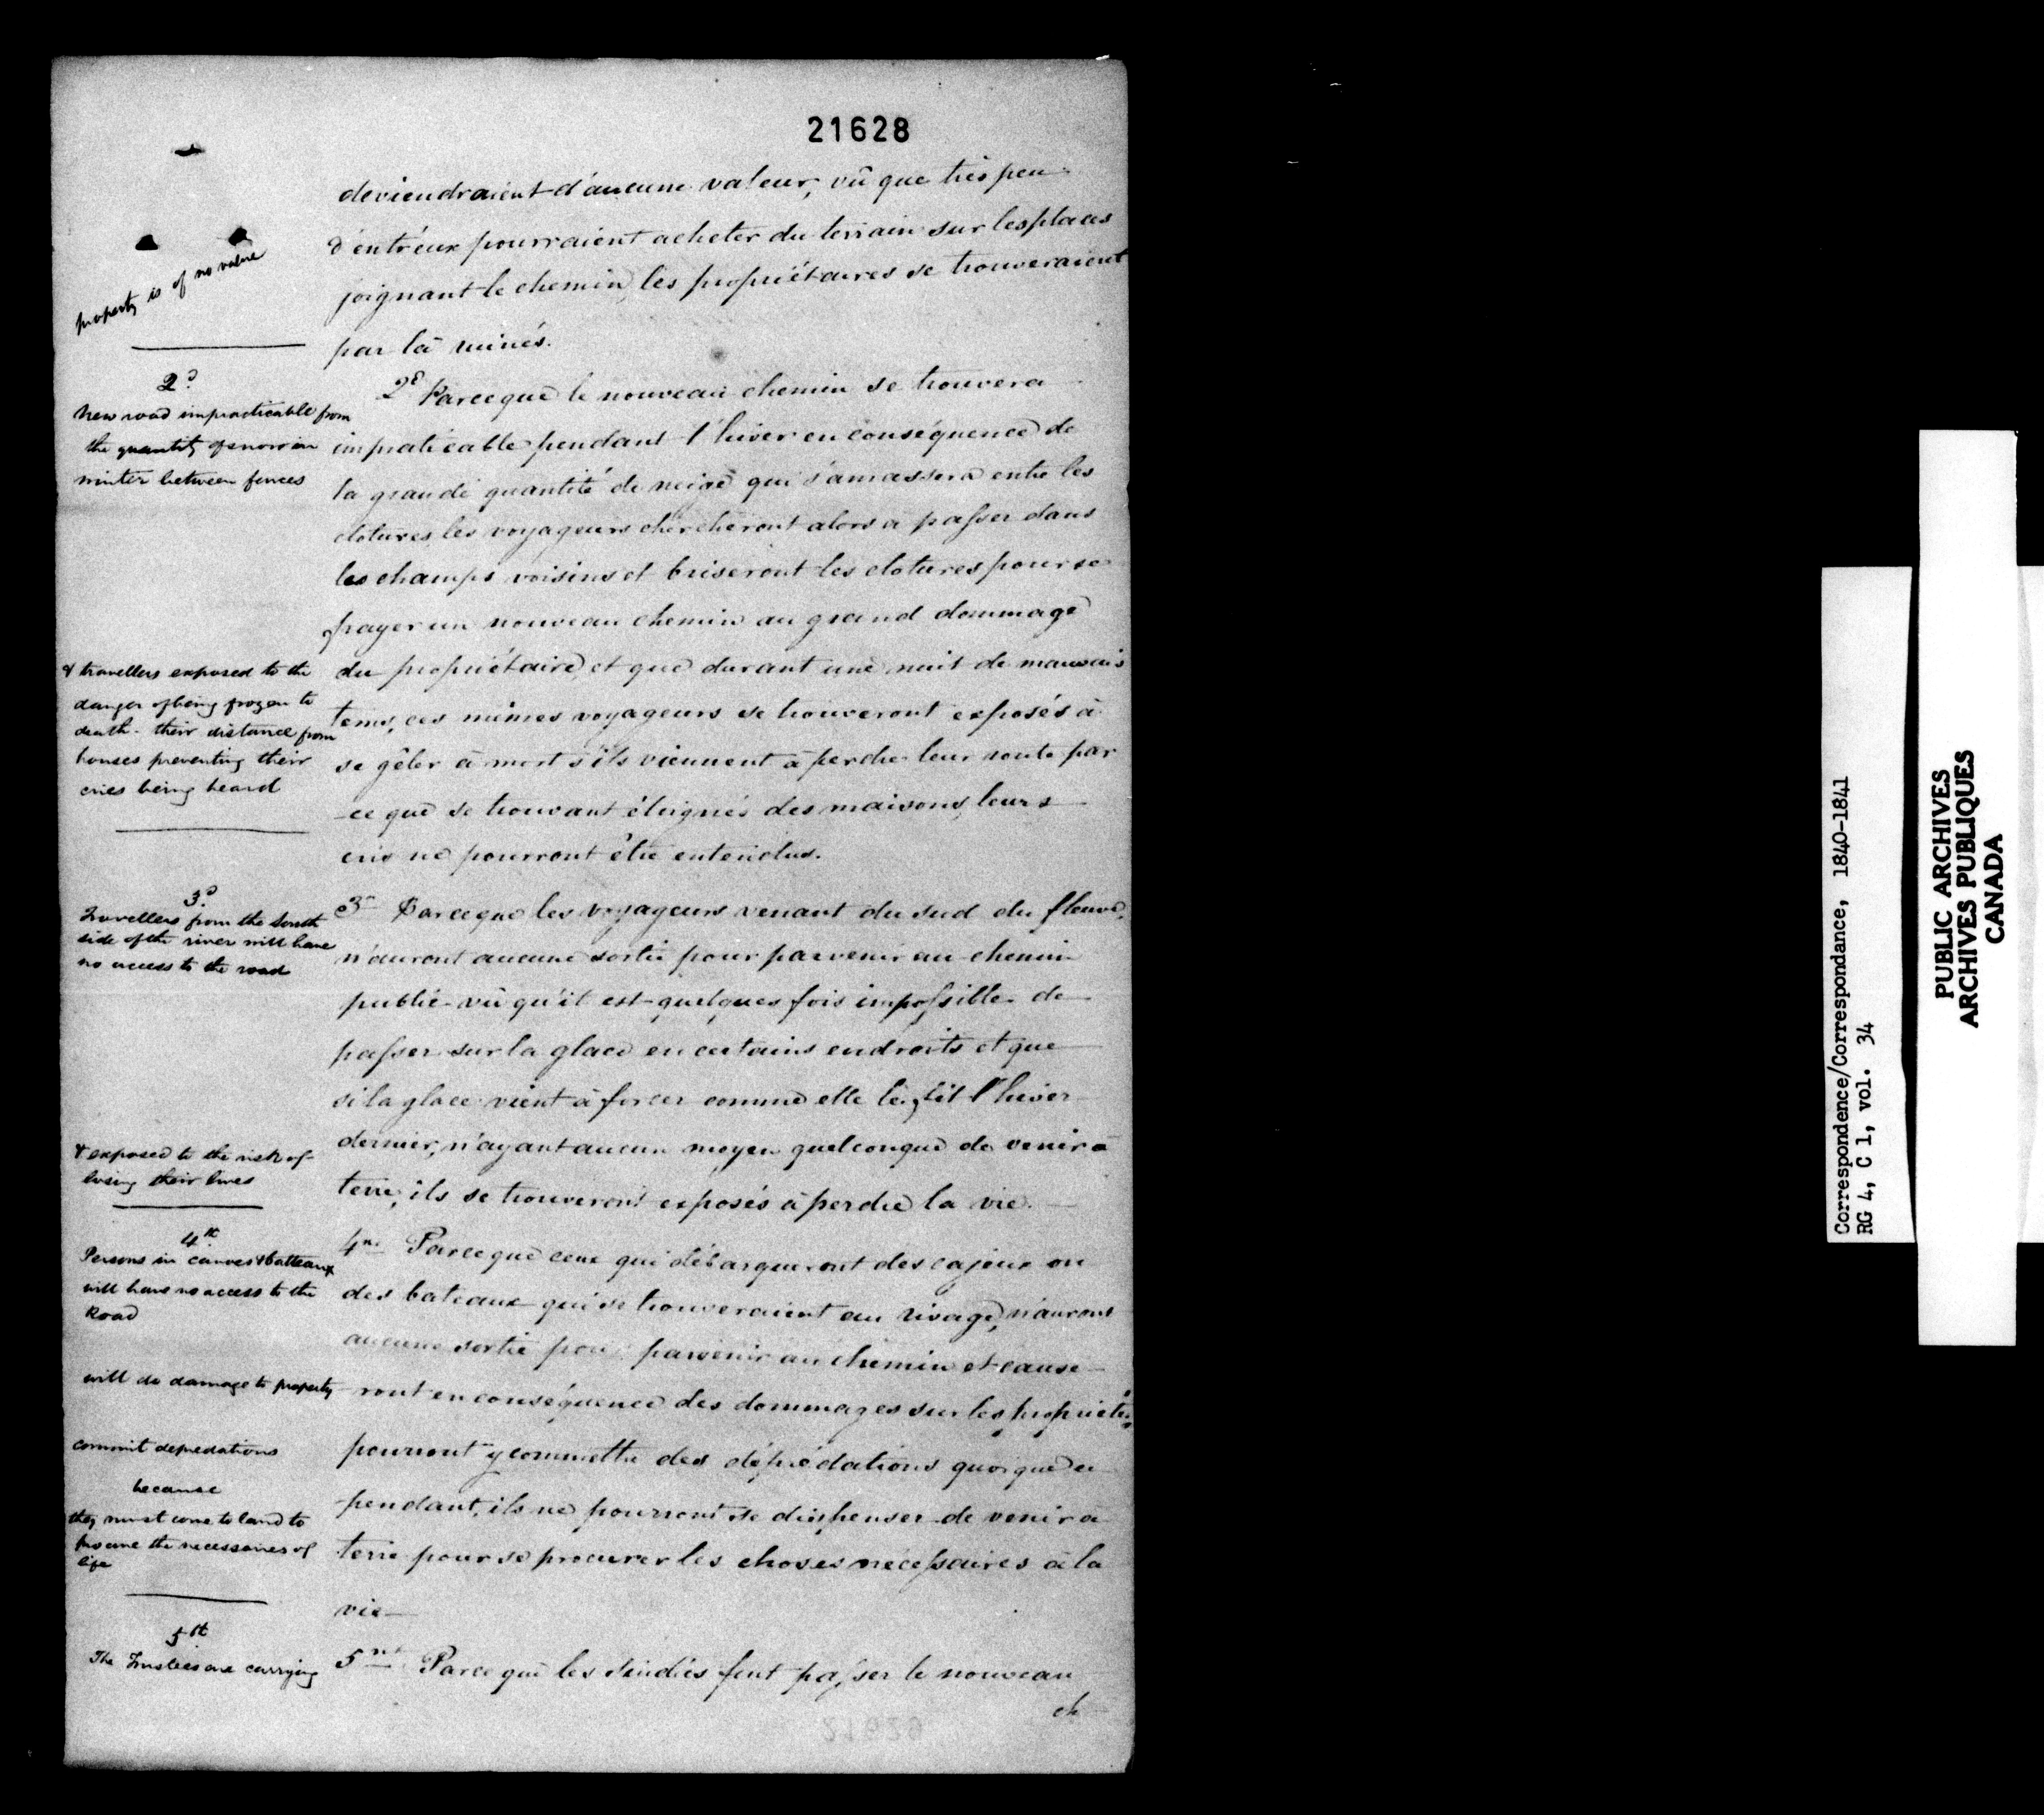 21628
deviendraient d'aucune valeur, vû que très peu
d'entr'eux pourraient acheter du terrain sur les places
joignant le chemin, les propriétaires se trouveraient
par là ruinés.
property is of no value
2d
New road impracticable from
the quantity of snow in
winter between fences
2e Parceque le nouveau chemin se trouvera
impraticable pendant l'hiver en conséquence de
la grande quantité de neige qui s'amassera entre les
clotures, les voyageurs chercheront alors a passer dans
les champs voisins et briseront les clotures pour se
frayer un nouveau chemin au grand dommage
du propriétaire, et que durant une nuit de mauvais
tems, ces mêmes voyageurs se trouveront exposés à
se gêler à mort s'ils viennent à perdre leur route par
ce que se trouvant éloignés des maisons, leurs
cris ne pourront être entendus.
& travellers exposed to the
danger of being frozen to
death - their distance from
houses preventing their
cries being heard
3d
Travellers from the South
side of the river will have
no access to the road
3e Parceque les voyageurs venant du sud du fleuve,
n'auront aucune sortie pour parvenir au chemin
public vû qu'il est quelques fois impossible de
passer sur la glace en certains endroits et que
si la glace vient à forcer comme elle le fit l'hiver
dernier, n'ayant aucun moyen quelconque de venir à
terre, ils se trouveront exposés à perdre la vie.
& exposed to the risk of
losing their lives
4th
Persons in canoes & batteaux
will have no access to the
Road
4me Parceque ceux qui débarqueront des cajeux ou
des bateaux qui se trouveraient au rivage, n'auront
aucune sortie pour parvenir au chemin et cause
ront en conséquence des dommages sur les propriétés
pourront y commettre des déprédations quoique ce
pendant, ils ne pourront se dispenser de venir à
terre pour se procurer les choses nécessaires à la
vie
will do damage to property
commit depredations
because
they must come to land to
procure the necessaries of
life
5th
The Trustees are carrying
5me Parceque les Sindics font passer le nouveau
ch
21629
Correspondence/Correspondance, 1840-1841
RG 4, C 1, vol. 34
PUBLIC ARCHIVES
ARCHIVES PUBLIQUES
CANADA